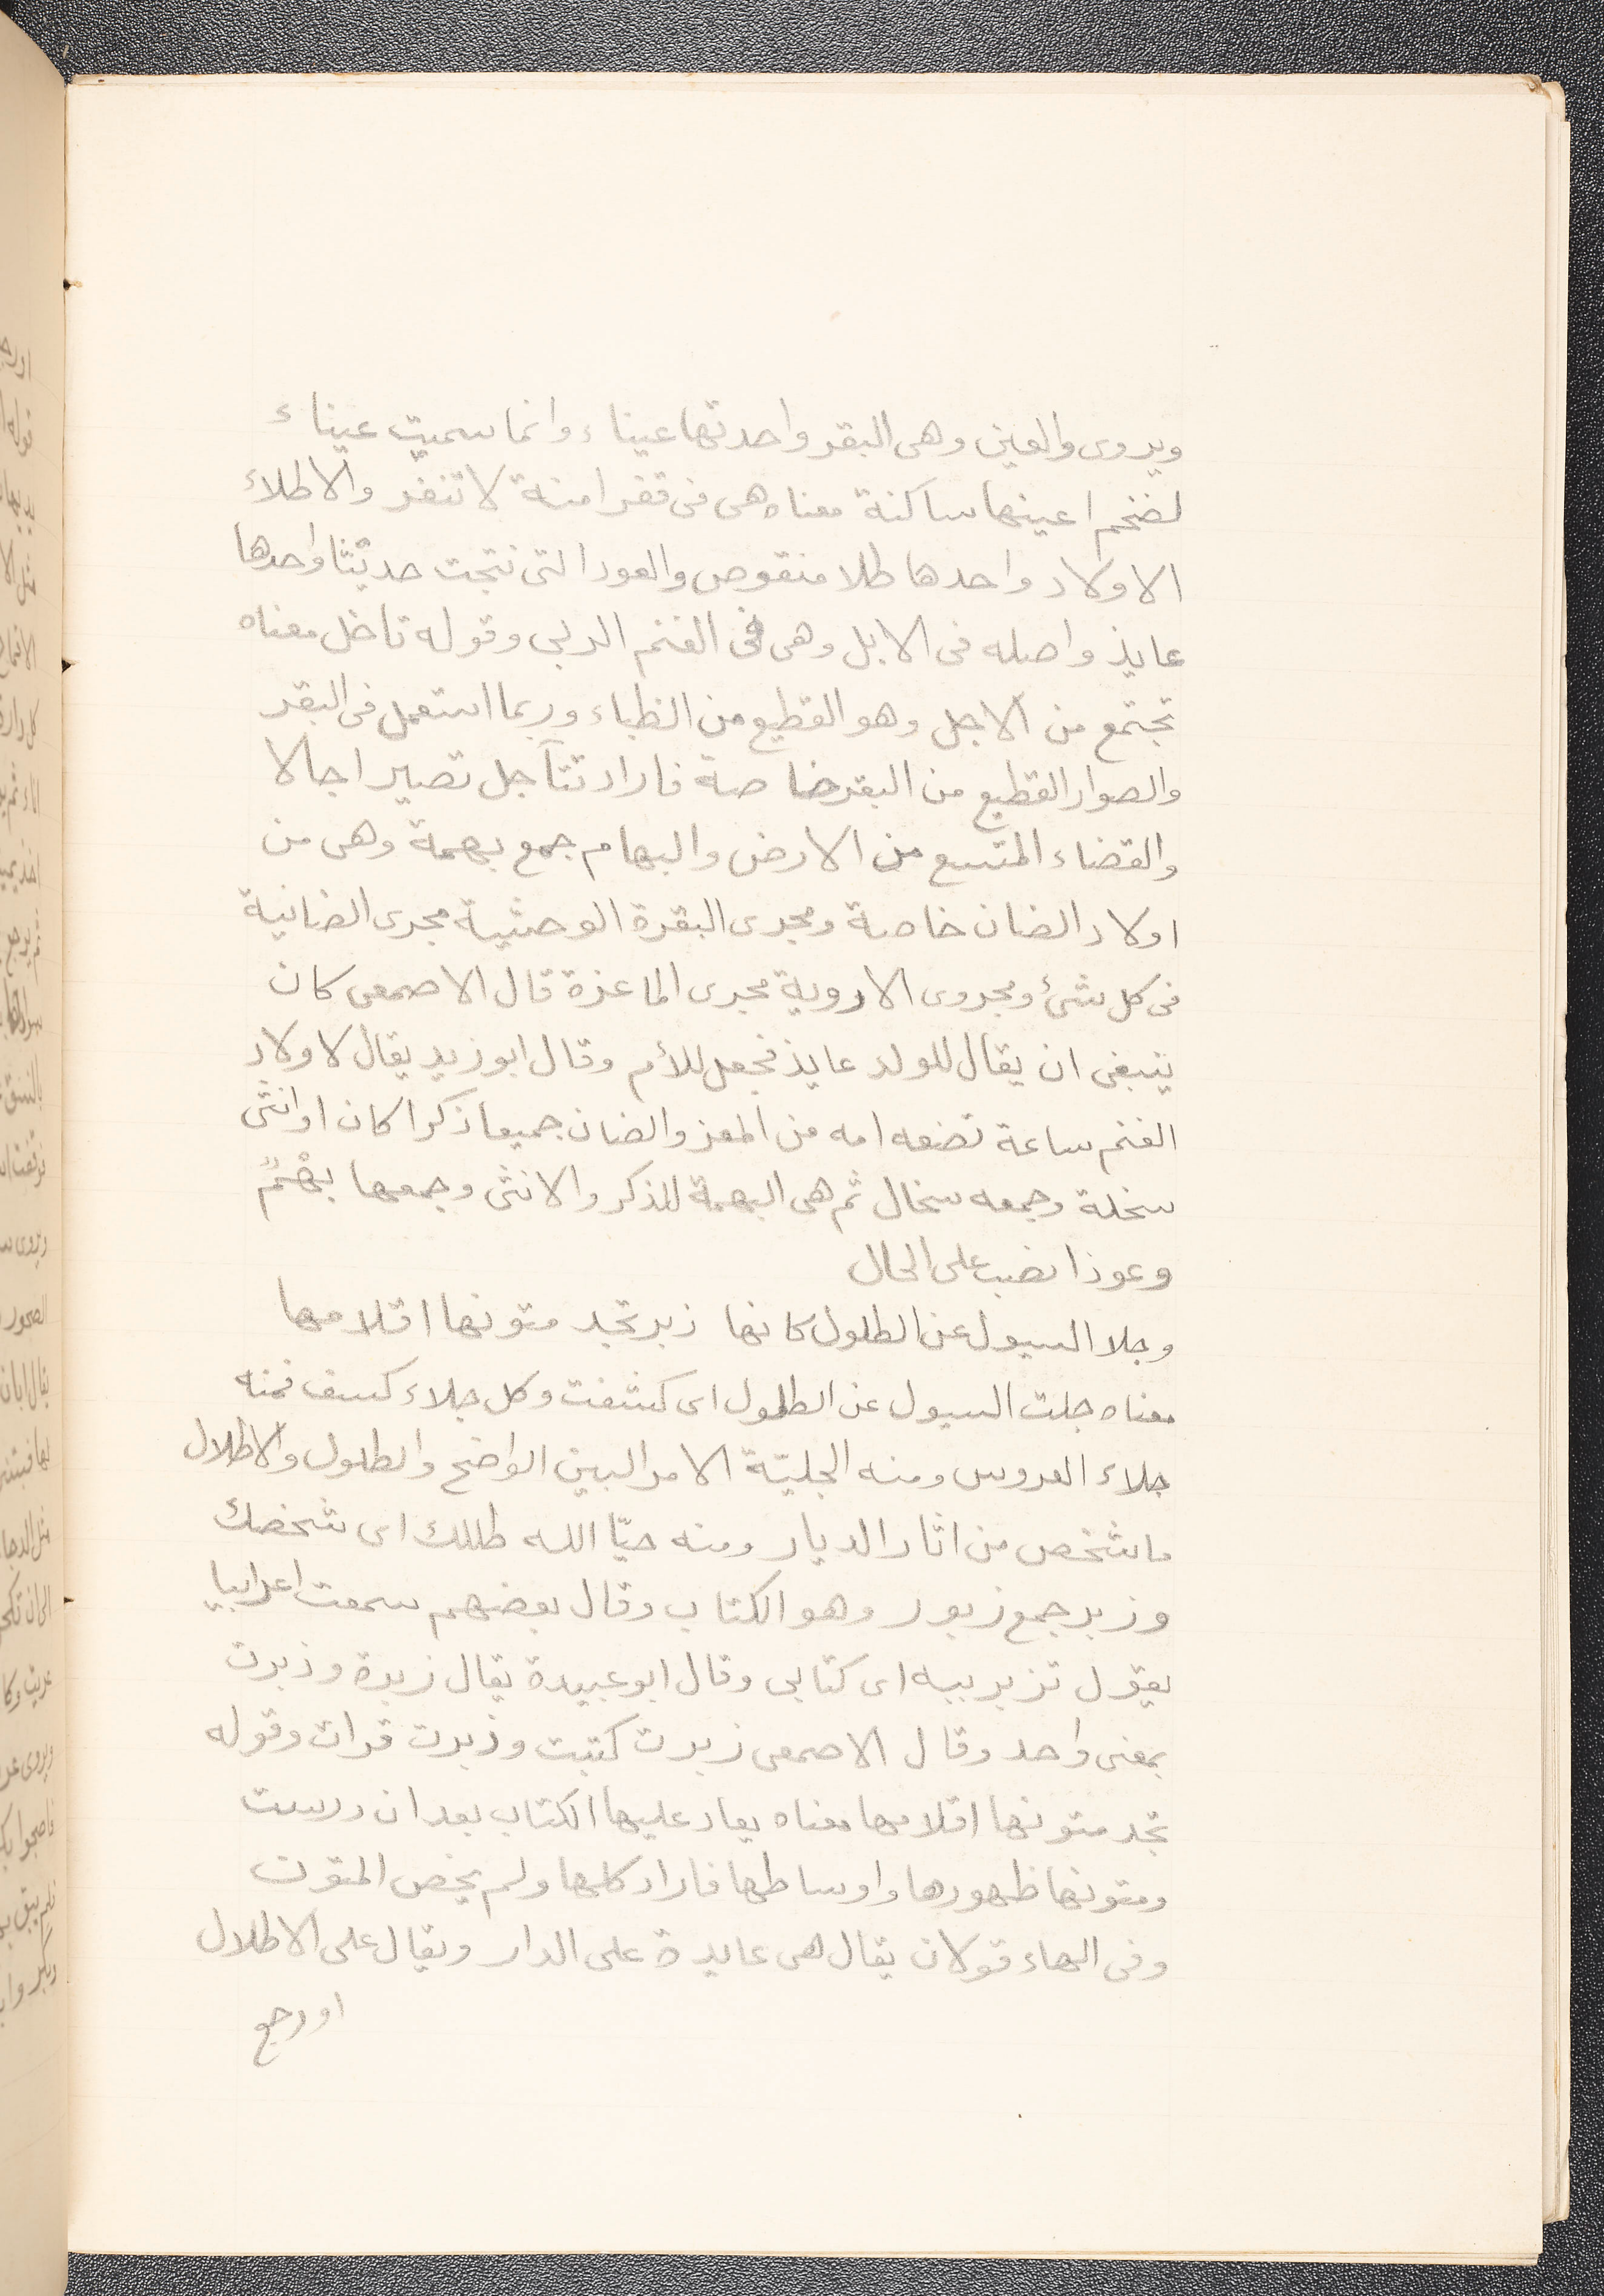 ويروى والعين وهى البقر واحدتها عيناء وانما سميت عيناء
لضخم اعينها ساكنة معناه هى فى قفر امنة لا تنفر والاطلاء
الاولاد واحدها طلا منقوص والعود التى نتجت حديثا واحدها
عايذ واصله فى الابل وهى فى الغنم الربى وقوله تاخل معناه
تجتمع من الاجل وهو القطيع من الظباء وربما استعمل فى البقر
والصوار القطيع من البقر خاصة فاراد تتآجل تصير اجالا
والقضاء المتسع من الارض والبهام جمع بهمة وهى من
اولاد الضان خاصة ومجرى البقرة الوحشية مجرى الضانية
فى كل شئ ومجروى الاروية مجرى الماعزة قال الاصمعى كان
ينبغى ان يقال للولد عايذ فجعل للأم وقال ابو زيد يقال لاولاد
الغنم ساعة تضعه امه من المعز والضان جميعا ذكرا كان او انثى
سخلة وجمعه سخال ثم هى البهمة للذكر والانثى وجمعها بهْمٌ
وعوذا نصب على الحال
وجلا السيول عن الطلول كانها زبر تجد متونها اقلامها
معناه جلت السيول عن الطلول اى كشفت وكل جلاء كسف فمنه
جلاء العروس ومنه الجليّة الامر البين الواضح والطلول والاطلال
ما شخص من اثار الديار ومنه حيّا الله طللك اى شخصك
وزبر جمع زبور وهو الكتاب وقال بعضهم سمعت اعرابيا
يقول تزبر بيه اى كتابى وقال ابو عبيدة يقال زبرة وذبرت
بمعنى واحد وقال الاصمعى زبرت كتبت وذبرت قرات وقوله
تجد متونها اقلامها معناه يعاد عليها الكتاب بعد ان درست
ومتونها ظهورها واوساطها فاراد كلها ولم يخص المتون
وفى الهاء قولان يقال هى عايدة على الدار ويقال على الاطلال
اورجع